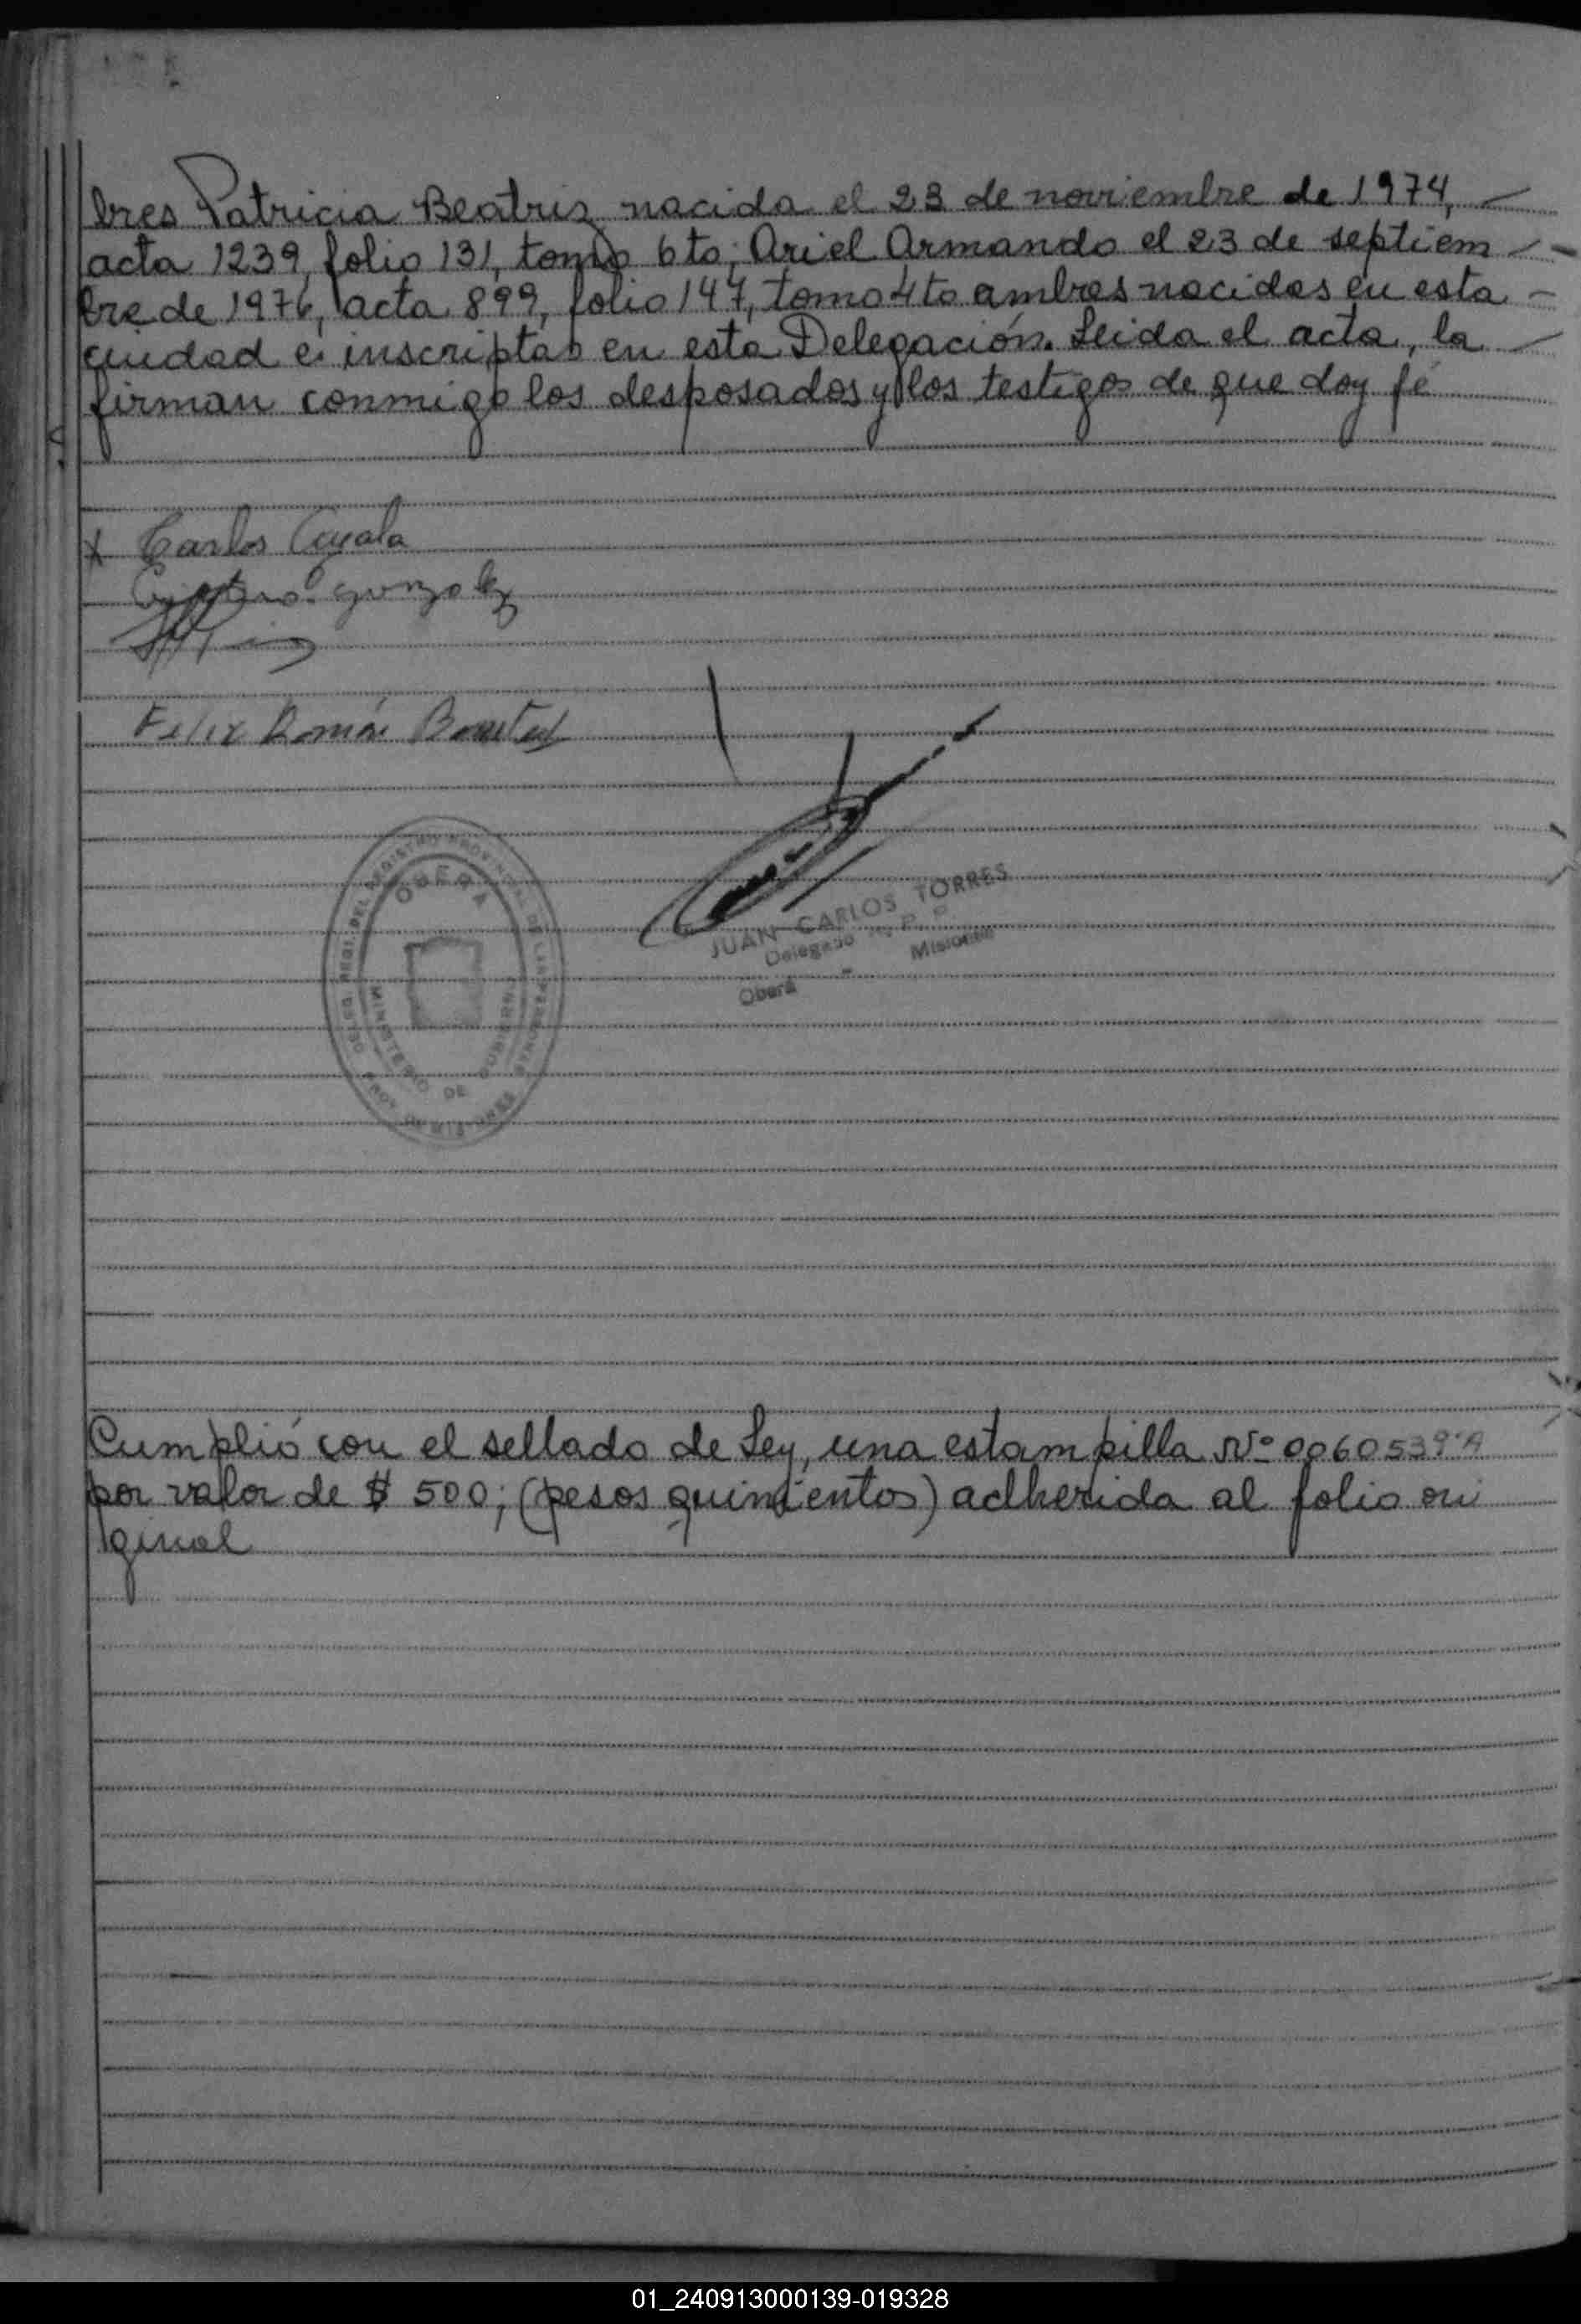 bres Patricia Beatriz nacida el 23 de noviembre de 1974, —
acta 1239, folio 131, tomo 6to; Ariel Armando el 23 de septiem —
bre de 1976, acta 899, folio 147, tomo 4to ambos nacidos en esta —
ciudad e inscriptas en esta Delegación. Leida el acta, la —
firman conmigo los desposados y los testigos de que doy fé
x Carlos Ayala
gonzalez
Felix Román
JUAN CARLOS TORRES
Delegado R. P. P.
Oberá - Misiones
OBERA
MINISTERIO DE GOBIERNO
PROV. DE MISIONES
Cumplió con el sellado de Ley, una estampilla Nº 0060539 A
por valor de $ 500; (pesos quinientos) adherida al folio ori
ginal
01_240913000139-019328